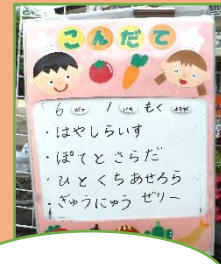 こんだて
6 がつ 1 にち もく ようび
・はやしらいす
・ぽてとさらだ
・ひとくちあせろら
・ぎゅうにゅうゼリー